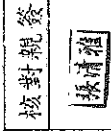 核對親簽
張清雅